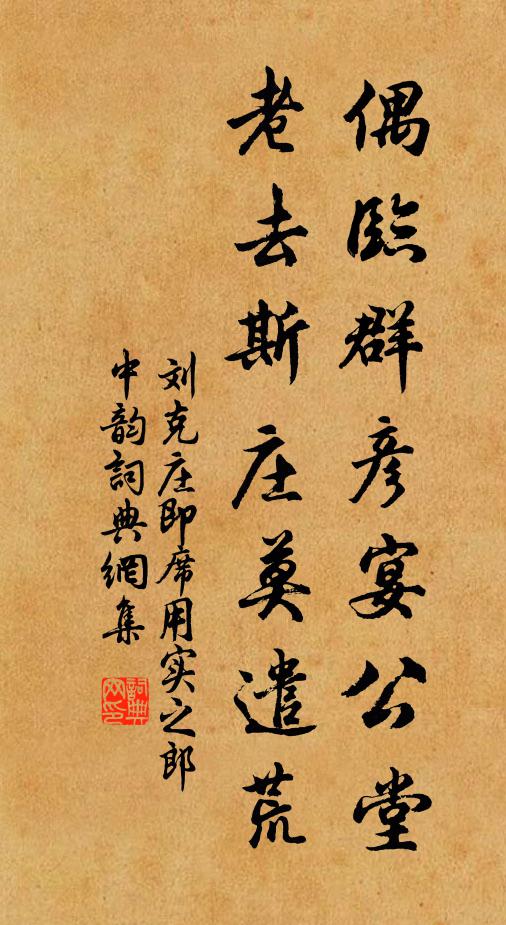 偶臨群彦宴公堂
老去斯庄莫遣荒
刘克庄即席用实之郎
中韵詞典網集
詞典網印